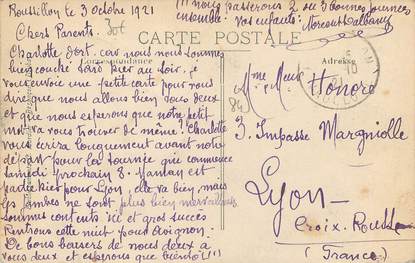 Roussillon le 3 Octobre 1921
!!! nous passerons 2 ou 3 bonnes journées
ensemble. Vos enfants:
30f
Chers Parents.
CARTE POSTALE
Charlotte dort, car nous nous sommes
bien couché tard hier au soir, je
vous envoie une petite carte pour vous
dire que nous allons bien tous deux
et que nous esperons que notre petit
mot va vous trouver de même! Charlotte
vous écrira longuement avant notre
départ pour la tournée qui commence
Samedi prochain 8. Maman est
pour Lyon, elle va bien, mais
ses jambes ne sont plus bien merveilleuses
Sommes contents ici et gros succès
Rentrons cette nuit pour Avignon.
De bons baisers de nous deux à
vous deux et esperons que bientôt!!!
Correspondance
Adresse
Mme Honoré
84
3. Impasse Margnolle
Lyon-
Croix-Rousse
(France)